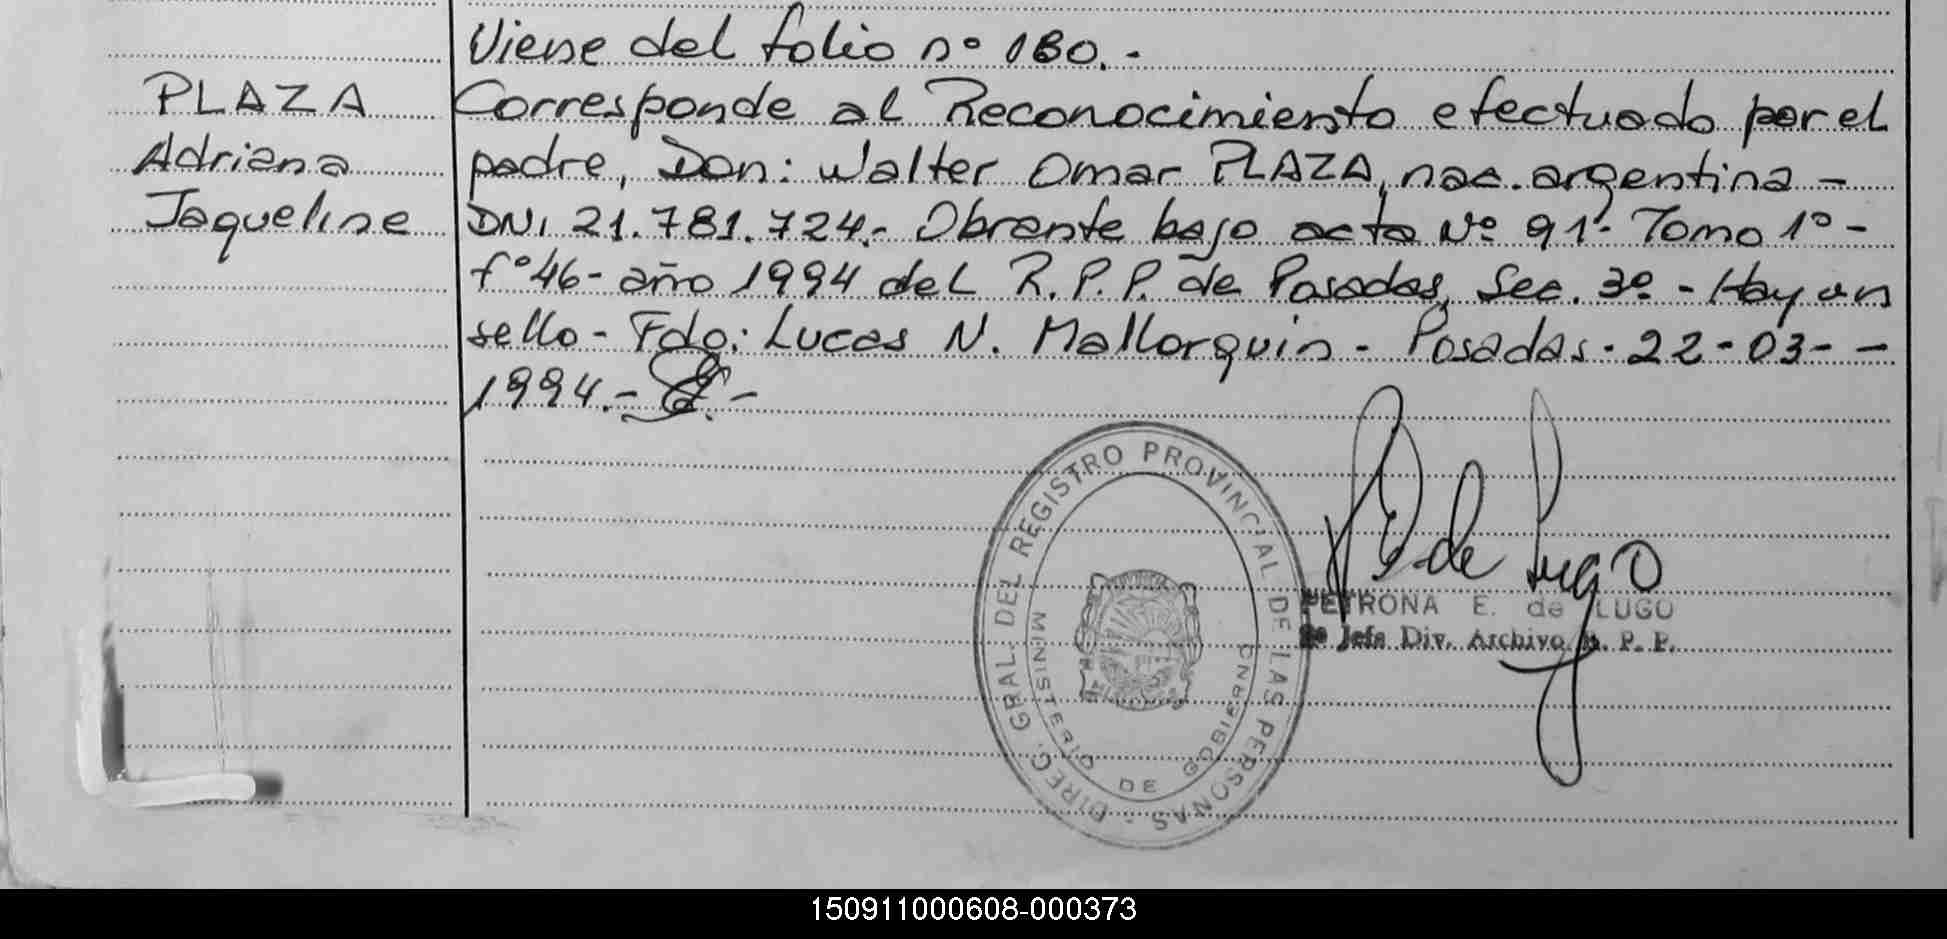 Viene del folio nº 180.-
PLAZA
Adriana
Jaqueline
Corresponde al Reconocimiento efectuado por el
padre, Don: Walter Omar PLAZA, nac. argentina -
DNI 21.781.724.- Obrante bajo acta Nº 91- Tomo 1º -
fº 46 - año 1994 del R.P.P. de Posadas, Sec. 3º. - Hay un
sello - Fdo: Lucas N. Mallorquin - Posadas - 22-03- -
1994.- -
DIREC. GRAL. DEL REGISTRO PROVINCIAL DE LAS PERSONAS -
MINISTERIO DE GOBIERNO
MISIONES
P E de Lugo
PETRONA E. de LUGO
Jefa Div. Archivo R. P. P.
150911000608-000373